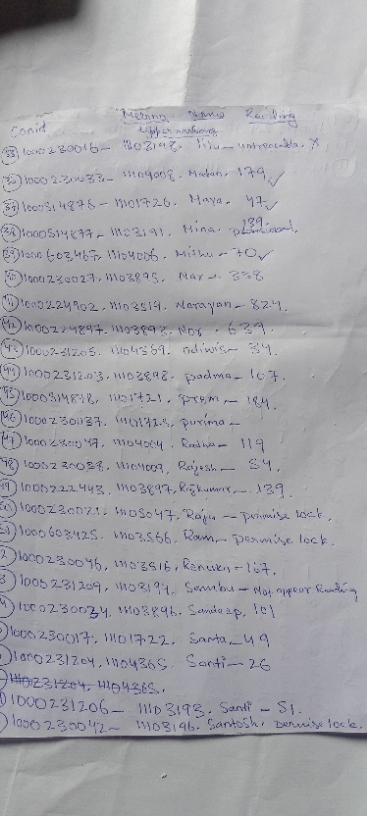 Meena Name Reading
Conid
upper
1000230016- 303198.
1000230033- 11104008. Madan, 179 ✓
1000514875- 11101726. Maya. 47 ✓
1000514877- 1103191. Mina. 139
1000603467, 11104006, Mithu - 70 ✓
1000230027, 11103895, Max - 338
1000224902, 11103514, Narayan - 824.
1000224897, 11103892, Nor . 639
1000231205. 11104369. - 34.
1000231203, 11103898. padma - 167.
1000514878, 1101721, prem - 184.
1000230037. 11101723, purima -
11104004, Radha - 119
1000230038, 11104009, Rajesh - 54.
1000222443, 11103897, Rajkumar - 139.
1000230021, 11105047, Raju - permise lock.
1000603425. 11103566, Ram, permise lock.
1000230046, 11103516, Renuka - 167.
1000231209, 1103194, Sambu - Not appear Reading
1000230034, 11103896, Sandeep, 101
1000230017, 11101722, Santa - 49
1000231204, 11104365. Santi - 26
231204, 11104365.
1000231206 - 11103193. Santi - 51.
1000230042 - 11103196. Santosh, permise lock.